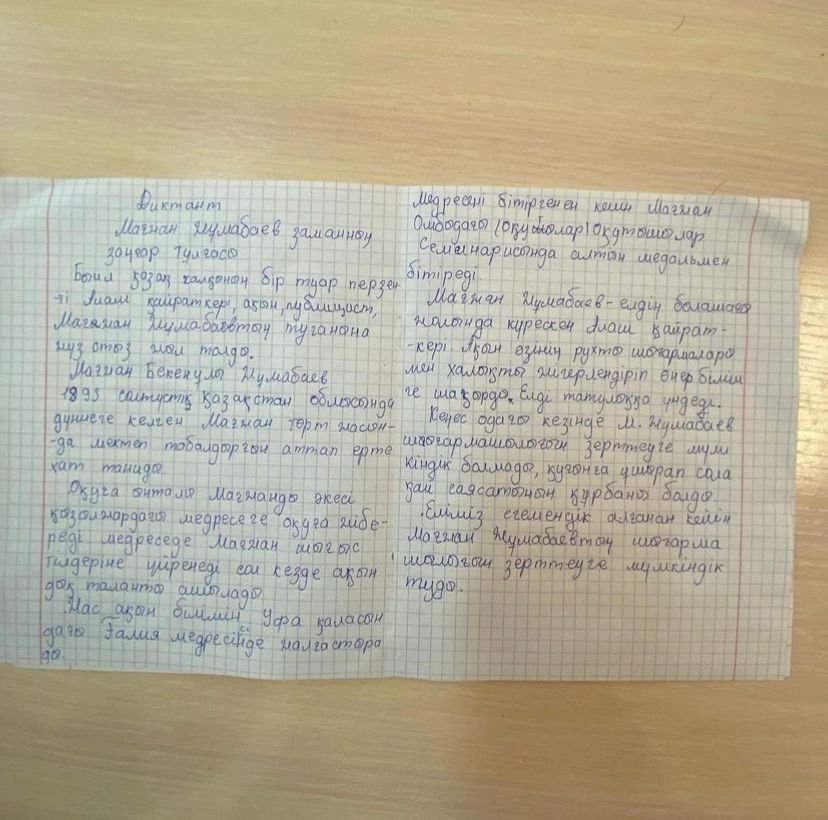 Диктант
Мағжан Жұмабаев заманның
заңғар тұлғасы
Биыл қазақ халқының бір туар перзен-
-ті Алаш қайраткері, ақын, публицист,
Мағжан Жұмабаевтың туғанына
жүз отыз жыл толды.
Мағжан Бекенұлы Жұмабаев
1893 солтүстік Қазақстан облысында
дүниеге келген Мағжан төрт жасын-
-да мектеп табалдырғын аттап ерте
хат таниды.
Оқуға ынталы Мағжанды әкесі
қызылжардағы медресеге оқуға жібе-
реді медреседе Мағжан шығыс
тілдеріне үйренеді сол кезде ақын
дық таланты ашылады.
Жас ақын білімін Уфа қаласын
дағы Ғалия медресінде жалғастыра
ды.
Медресені бітіргенен кейін Мағжан
Омбыдағы (оқушылар) Оқытышылар
Семинарисында алтын медальмен
бітіреді.
Мағжан Жұмабаев - елдің болашағы
жолында күрескен Алаш қайрат-
-кері. Ақын өзінің рухты шығармалары
мен халықты жігерлендіріп өнер, білім
ге шақырды. Елді татулыққа үндеді.
Кеңес одағы кезінде М. Жұмабаев
шығармашылығын зерттеуге мүм
кіндік болмады, қуғынға ұшырап сола
қай саясатының құрбаны болды.
Еліміз егемендік алғанан кейін
Мағжан Жұмабаевтың шығарма
шылығын зерттеуге мүмкіндік
туды.